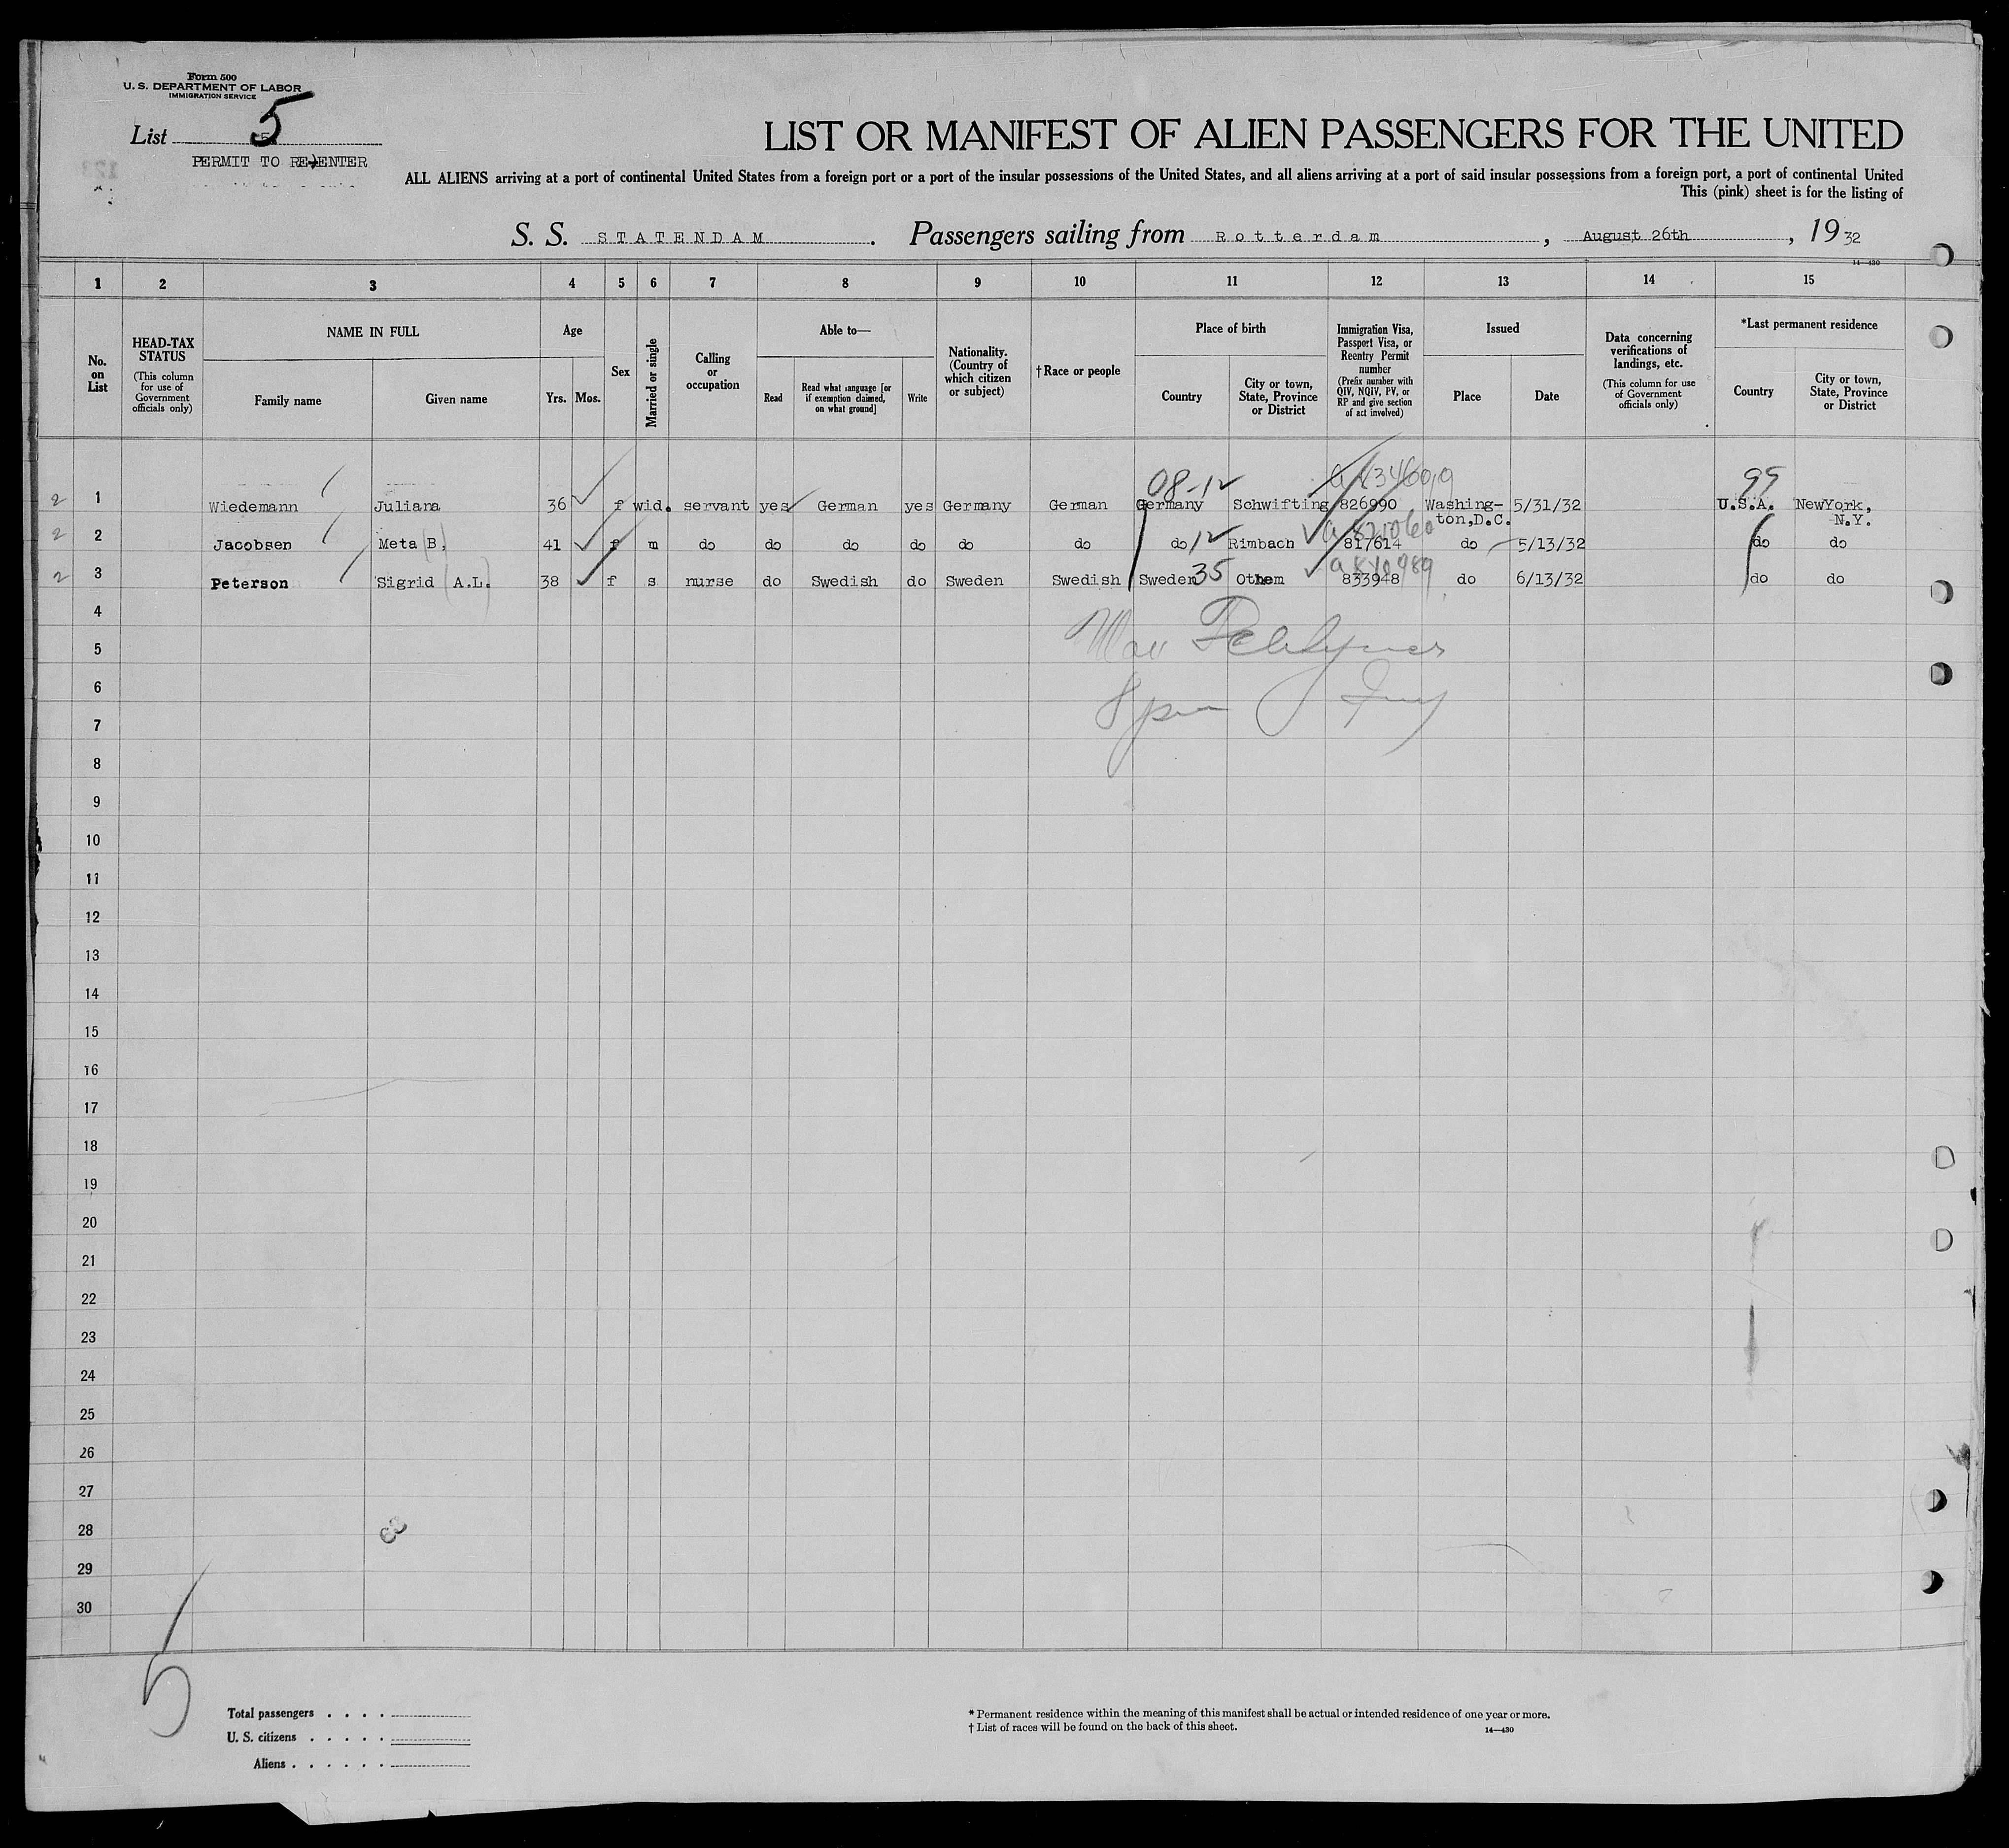 Form 500
U. S. DEPARTMENT OF LABOR
IMMIGRATION SERVICE
List 5
PERMIT TO RE-ENTER
LIST OR MANIFEST OF ALIEN PASSENGERS FOR THE UNITED
ALL ALIENS arriving at a port of continental United States from a foreign port or a port of the insular possessions of the United States, and all aliens arriving at a port of said insular possessions from a foreign port, a port of continental United
This (pink) sheet is for the listing of
S. S. STATENDAM . Passengers sailing from Rotterdam , August 26th , 19 32
14—430
1 2 3 4 5 6 7 8 9 10 11 12 13 14 15
No. on List
HEAD-TAX STATUS
(This column for use of Government officials only)
NAME IN FULL
Family name
Given name
Age
Yrs. Mos.
Sex
Married or single
Calling or occupation
Able to—
Read
Read what language [or if exemption claimed, on what ground]
Write
Nationality. (Country of which citizen or subject)
†Race or people
Place of birth
Country
City or town, State, Province or District
Immigration Visa, Passport Visa, or Reentry Permit number
(Prefix number with QIV, NQIV, PV, or RP and give section of act involved)
Issued
Place
Date
Data concerning verifications of landings, etc.
(This column for use of Government officials only)
*Last permanent residence
Country
City or town, State, Province or District
08-12 99
2 1 Wiedemann Juliana 36 f wid. servant yes German yes Germany German Germany Schwifting 826990 Washing- 5/31/32 U.S.A. NewYork,
ton,D.C. N.Y.
2 2 Jacobsen Meta (B, 41 f m do do do do do do do 12 Rimbach 817614 do 5/13/32 do do
2 3 Peterson Sigrid (A.L.) 38 f s nurse do Swedish do Sweden Swedish Sweden 35 Othem 833948 do 6/13/32 do do
4
5
6
7
8
9
10
11
12
13
14
15
16
17
18
19
20
21
22
23
24
25
26
27
28
29
30
5
Total passengers . . . .
U. S. citizens . . . . .
Aliens . . . . . .
* Permanent residence within the meaning of this manifest shall be actual or intended residence of one year or more.
† List of races will be found on the back of this sheet.
14—430